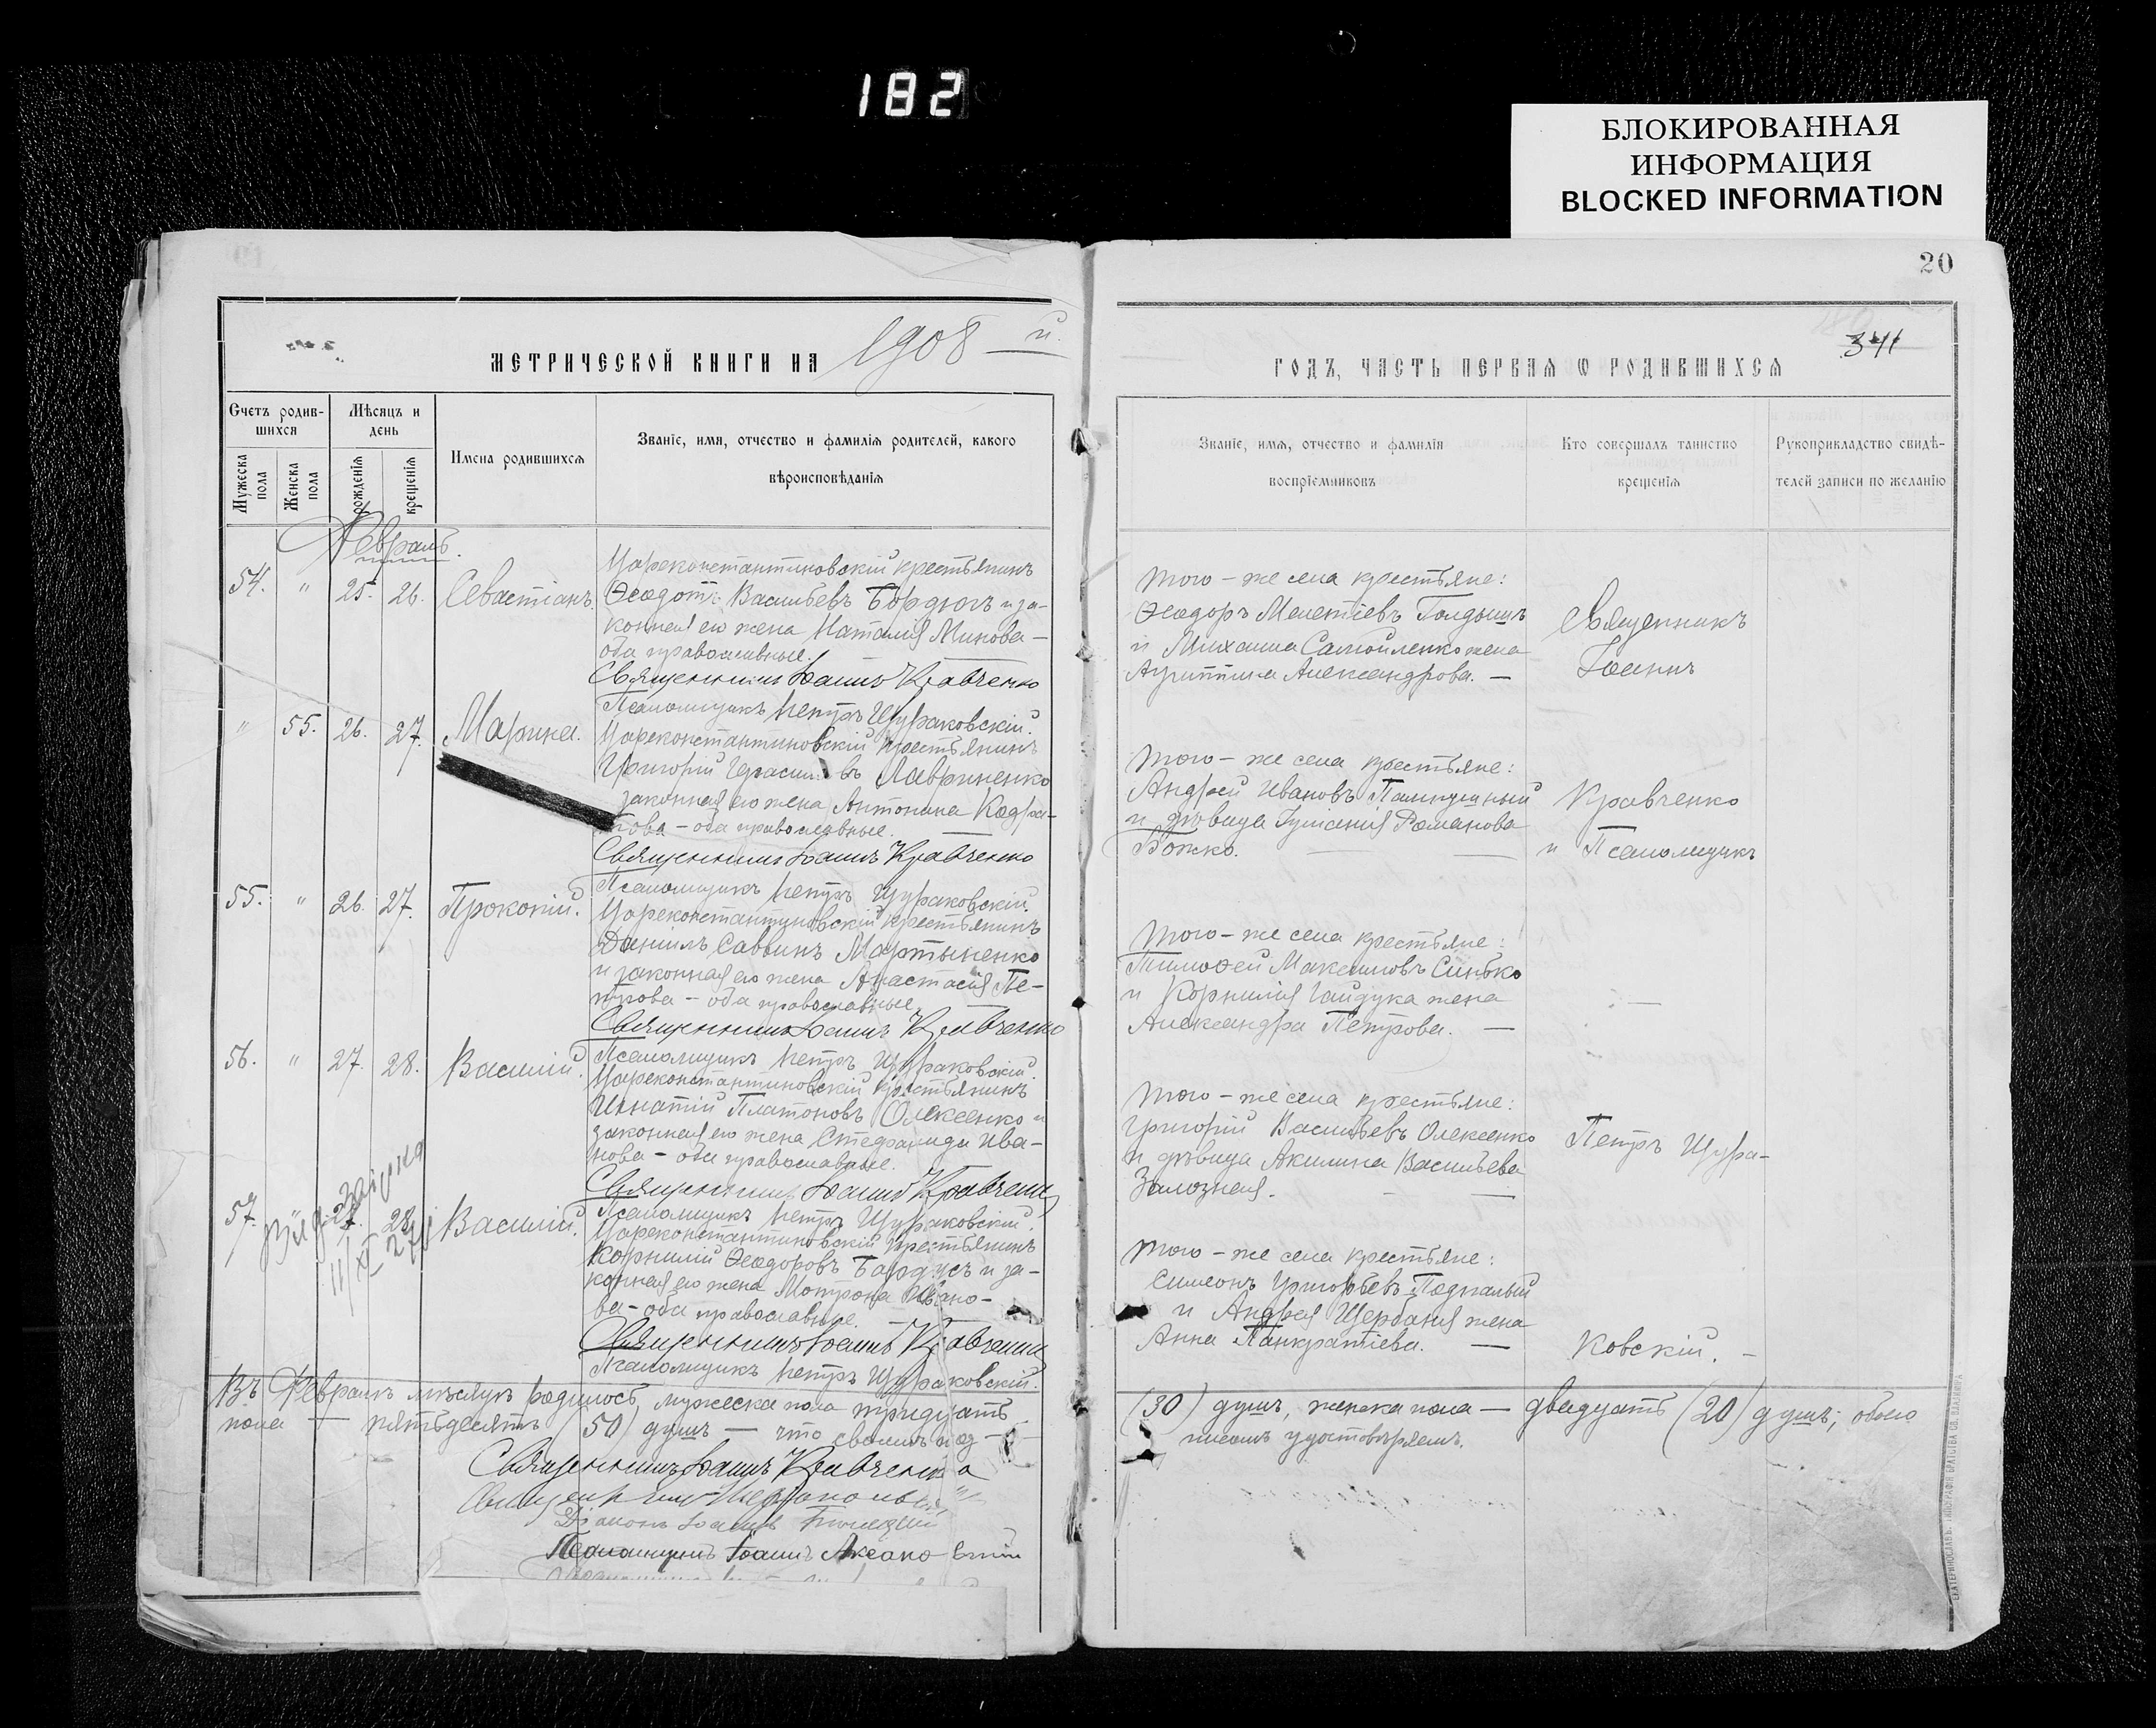 182
БЛОКИРОВАННАЯ
ИНФОРМАЦИЯ
BLOCKED INFORMATION
20
МЕТРИЧЕСКОЙ КНИГИ НА 1908 й.
Счетъ родив-
шихся
Мѣсяцъ и
день
Мужеска
пола
Женска
пола
рожденія
крещенія
Имена родившихся
Званіе, имя, отчество и фамилія родителей, какого
вѣроисповѣданія
Февраль.
54. " 25. 26. Севастіанъ.
Цареконстантиновскій крестьянинъ
Ѳеодотъ Васильевъ Бордюгъ и за-
конная его жена Наталія Минова –
оба православные.
Священникъ Іоаннъ Кравченко
Псаломщикъ Петръ Щураковскій.
" 55. 26. 27. Марина.
Цареконстантиновскій крестьянинъ
Григорій Герасимовъ Лавриненко
законная его жена Антонина Кодра-
това – оба православные.
Священникъ Іоаннъ Кравченко
Псаломщикъ Петръ Щураковскій.
55. " 26. 27. Прокопій.
Цареконстантиновскій крестьянинъ
Даніилъ Саввинъ Мартыненко
и законная его жена Анастасія Пе-
трова – оба православные
Священникъ Іоаннъ Кравченко
Псаломщикъ Петръ Щураковскій.
56. " 27. 28. Василій.
Цареконстантиновскій крестьянинъ
Игнатій Платоновъ Олексенко и
законная его жена Стефанида Ива-
нова – оба православные.
Священникъ Іоаннъ Кравченко
Псаломщикъ Петръ Щураковскій.
57. 27. 28. Василій.
Цареконстантиновскій крестьянинъ
Корнилій Ѳеодоровъ Бардусъ и за-
конная его жена Мотрона Ивано-
ва – оба православные.
Священникъ Іоаннъ Кравченко
Псаломщикъ Петръ Щураковскій.
Въ Февралѣ мѣсяцѣ родилось мужеска пола тридцать
пола — пятьдесятъ (50) душъ — что своимъ под-
Священникъ Іоаннъ Кравченко
Діаконъ Іоаннъ
Псаломщикъ Іоаннъ
ГОДЪ, ЧАСТЬ ПЕРВАЯ О РОДИВШИХСЯ
341
Званіе, имя, отчество и фамилія
воспріемниковъ
Кто совершалъ таинство
крещенія
Рукоприкладство свидѣ-
телей записи по желанію
Того – же села крестьяне:
Ѳеодоръ Мелетіевъ Голдышъ
и Михаила Самойленко жена
Агриппина Александрова. —
Того – же села крестьяне:
Андрей Ивановъ Палкушный
и дѣвица Іуліанія Романова
Божко.
Того – же села крестьяне:
Тимоѳей Максимовъ Синько
и Корнилія Гайдука жена
Александра Петрова. —
Того – же села крестьяне:
Григорій Васильевъ Олексенко
и дѣвица Акилина Васильева
Залозная.
Того – же села крестьяне:
Симеонъ Григорьевъ Подпалый
и Андрея Щербаня жена
Анна Панкратіева. —
Священникъ
Іоаннъ
Кравченко
и Псаломщикъ
Петръ Щура-
ковскій. –
(30) душъ, женска пола — двадцать (20) душъ; обоего
писомъ удостовѣряемъ.
ЕКАТЕРИНОСЛАВЪ. ТИПОГРАФІЯ БРАТСТВА СВ. ВЛАДИМІРА